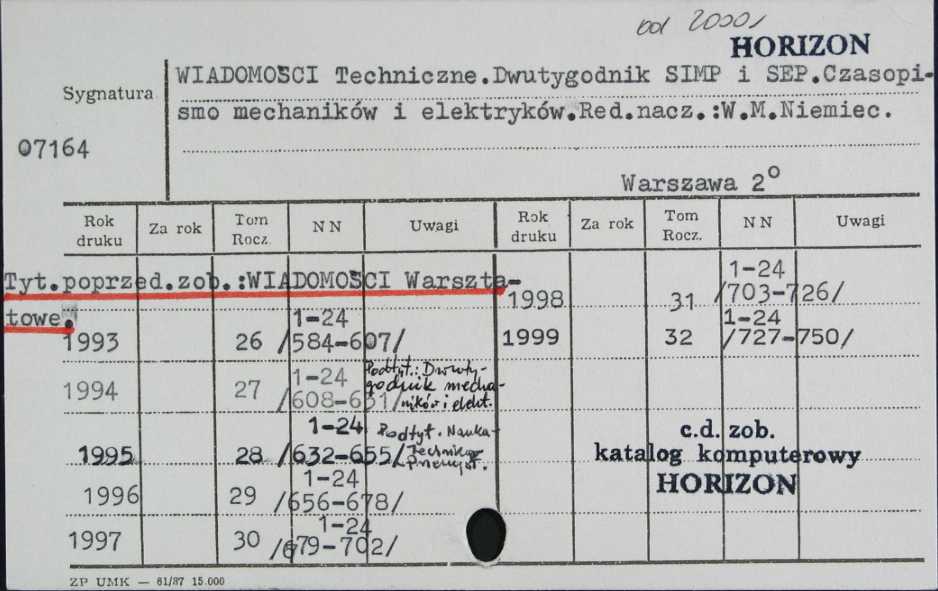 od 2000r
HORIZON
WIADOMOSCI Techniczne.Dwutygodnik SIMP i SEP.Czasopi-
Sygnatura
smo mechaników i elektryków.Red.nacz.:W.M.Niemiec.
07164
Warszawa 2°
Rok druku Za rok Tom Rocz. NN Uwagi Rok druku Za rok Tom Rocz. NN Uwagi
Tyt.poprzed.zob.:WIADOMOŚCI Warszta-
towe.
1993 26 1-24 /584-607/
1994 27 1-24 /608-631/ Podtyt.: Dwuty-
godnik mecha-
ników i elekt.
1995 28 1-24 /632-655/ Podtyt. Nauka-
Technika
Przemysł.
1996 29 1-24 /656-678/
1997 30 1-24 /679-702/
1998 31 1-24 /703-726/
1999 32 1-24 /727-750/
c.d. zob.
katalog komputerowy
HORIZON
ZP UMK — 61/87 15.000